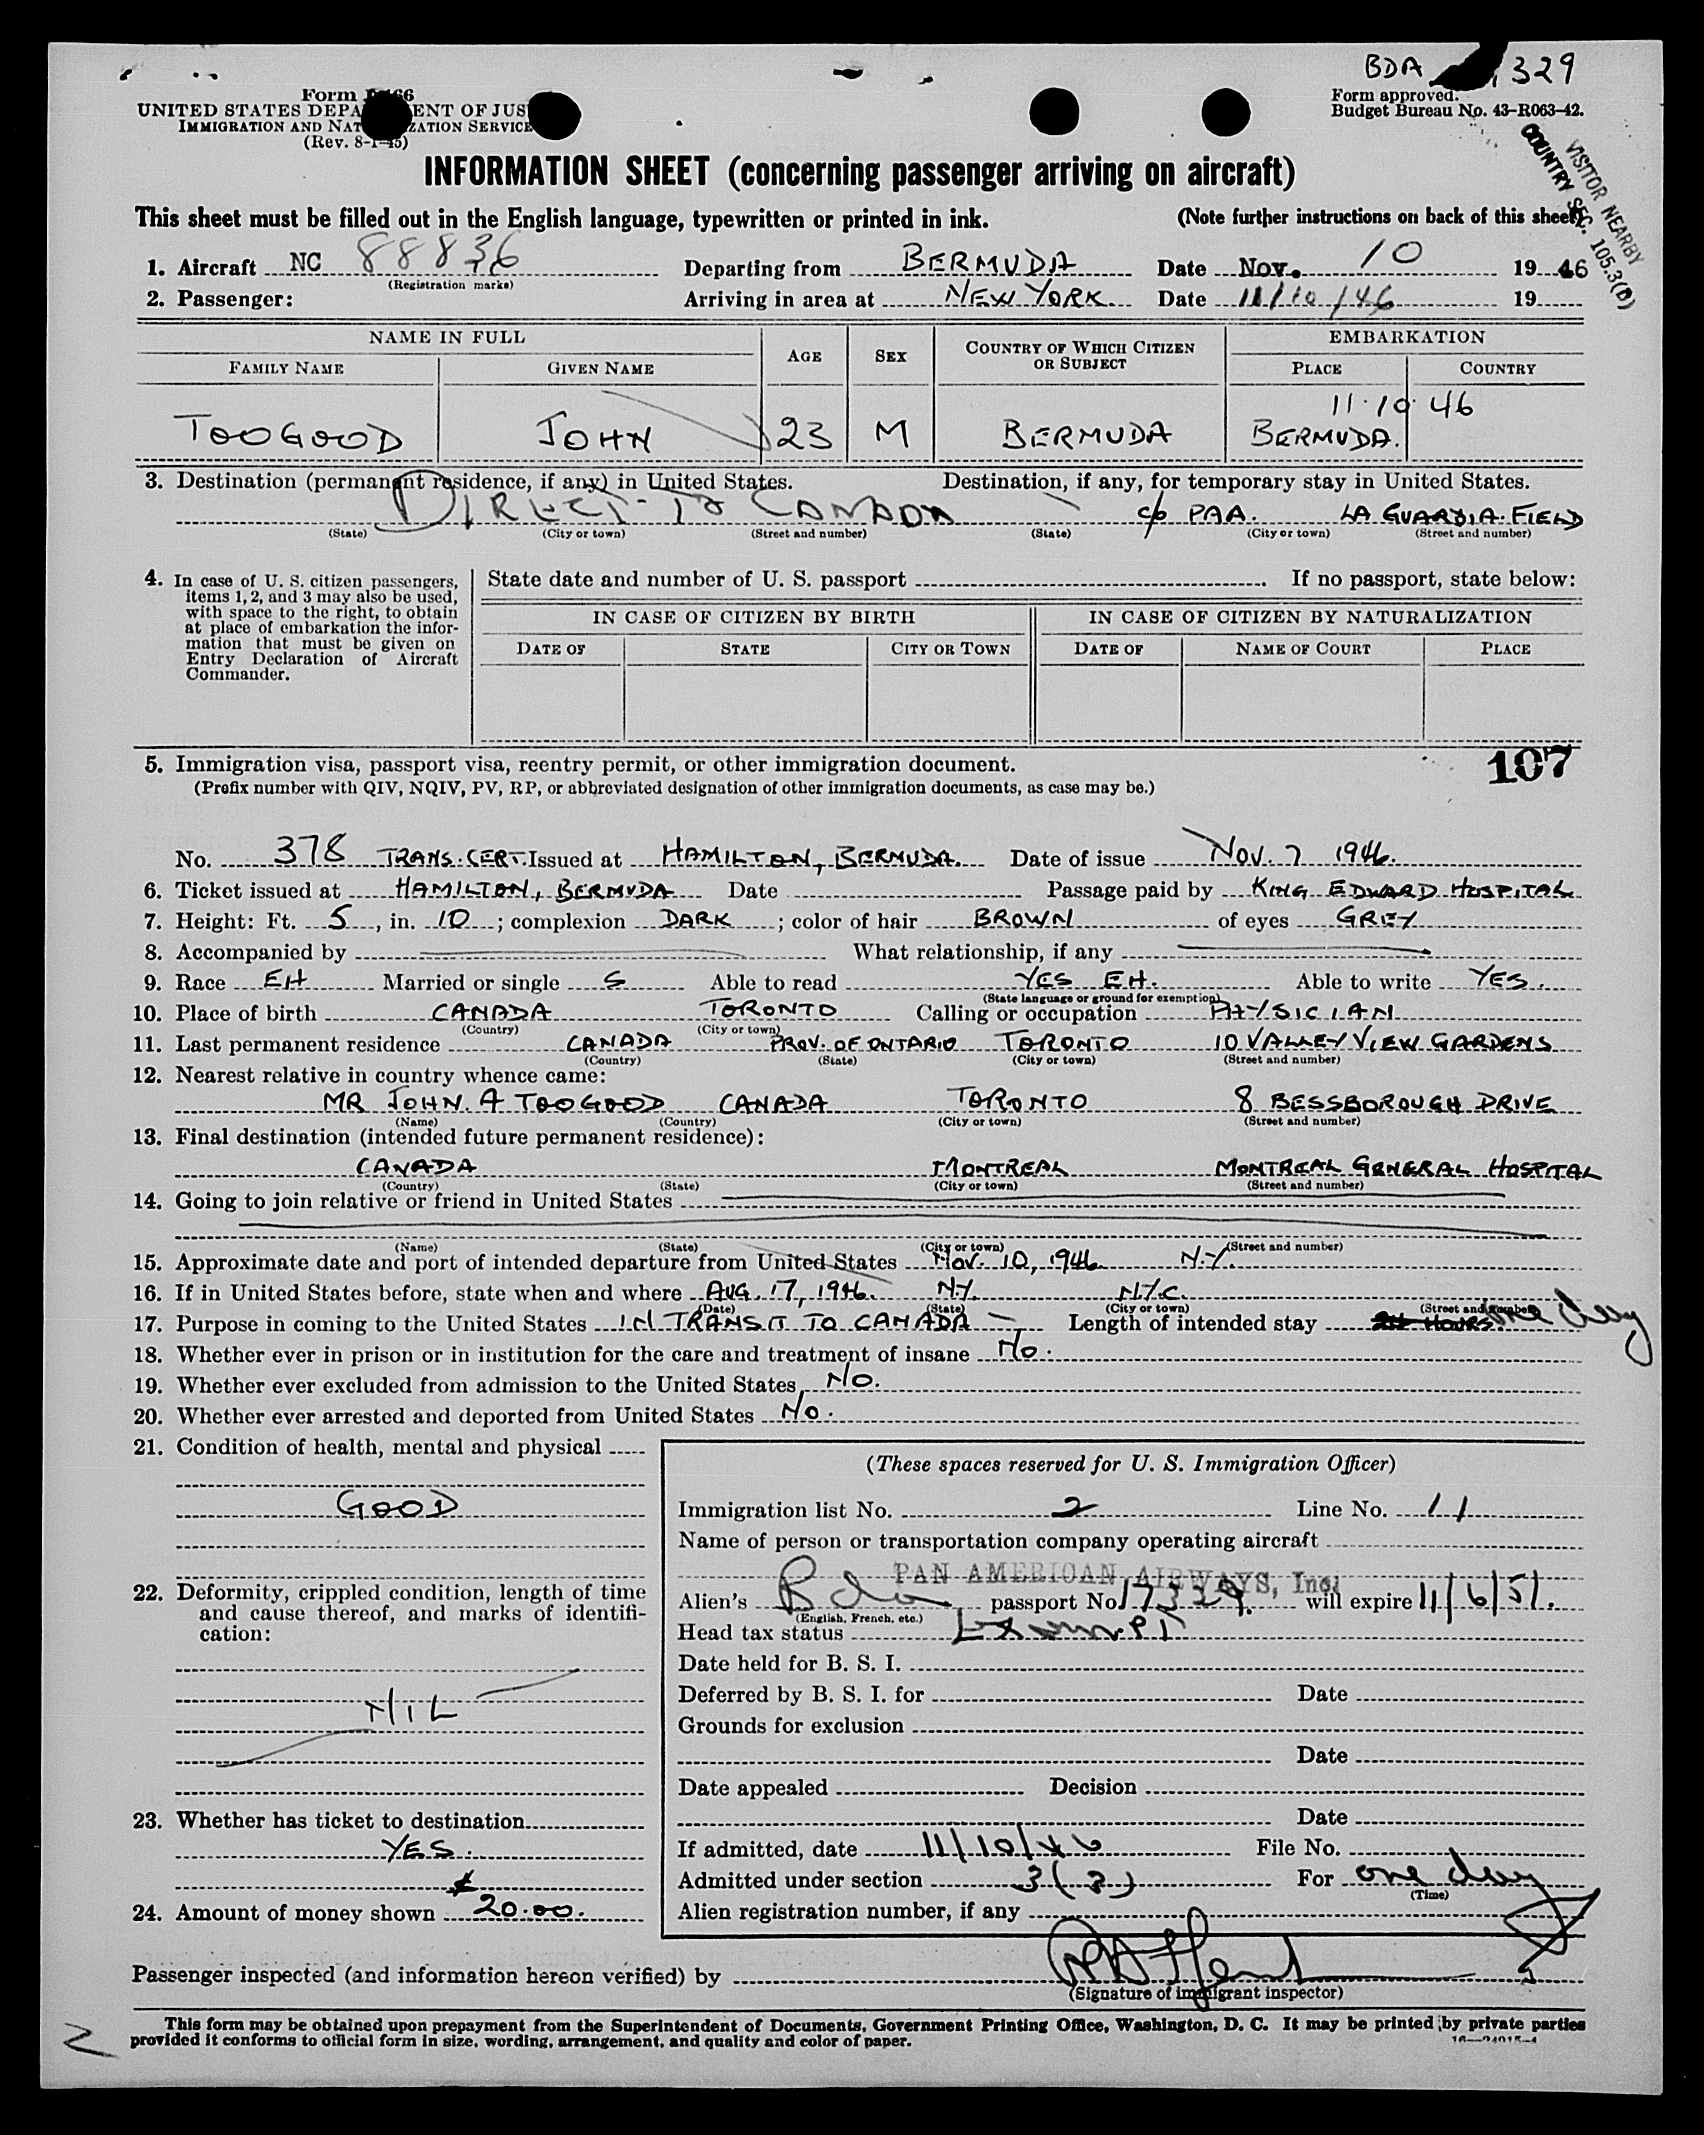 BDA 329
Form
Form approved.
Budget Bureau No. 43–R063–42.
UNITED STATES DEPA ENT OF JUS
IMMIGRATION AND NAT ZATION SERVICE
(Rev. 8-1-45)
VISITOR NEARBY
COUNTRY SEC. 105.3(B)
INFORMATION SHEET (concerning passenger arriving on aircraft)
This sheet must be filled out in the English language, typewritten or printed in ink. (Note further instructions on back of this sheet)
1. Aircraft NC 88836 Departing from BERMUDA Date Nov. 10 1946
(Registration marks)
2. Passenger: Arriving in area at NEW YORK. Date 11/10/46 19
NAME IN FULL AGE SEX COUNTRY OF WHICH CITIZEN OR SUBJECT EMBARKATION
FAMILY NAME GIVEN NAME PLACE COUNTRY
11·10 46
TOOGOOD JOHN 23 M BERMUDA BERMUDA.
3. Destination (permanent residence, if any) in United States. Destination, if any, for temporary stay in United States.
DIRECT TO CANADA c/o PAA. LA GUARDIA FIELD
(State) (City or town) (Street and number) (State) (City or town) (Street and number)
4. In case of U. S. citizen passengers, items 1, 2, and 3 may also be used, with space to the right, to obtain at place of embarkation the information that must be given on Entry Declaration of Aircraft Commander.
State date and number of U. S. passport . If no passport, state below:
IN CASE OF CITIZEN BY BIRTH IN CASE OF CITIZEN BY NATURALIZATION
DATE OF STATE CITY OR TOWN DATE OF NAME OF COURT PLACE
107
5. Immigration visa, passport visa, reentry permit, or other immigration document.
(Prefix number with QIV, NQIV, PV, RP, or abbreviated designation of other immigration documents, as case may be.)
No. 378 TRANS. CERT. Issued at HAMILTON, BERMUDA. Date of issue Nov. 7 1946.
6. Ticket issued at HAMILTON, BERMUDA Date Passage paid by KING EDWARD HOSPITAL
7. Height: Ft. 5, in. 10; complexion DARK; color of hair BROWN of eyes GREY
8. Accompanied by What relationship, if any
9. Race EH Married or single S Able to read YES EH. Able to write YES.
(State language or ground for exemption)
10. Place of birth CANADA TORONTO Calling or occupation PHYSICIAN
(Country) (City or town)
11. Last permanent residence CANADA PROV. OF ONTARIO TORONTO 10 VALLEY VIEW GARDENS
(Country) (State) (City or town) (Street and number)
12. Nearest relative in country whence came:
MR JOHN. A TOOGOOD CANADA TORONTO 8 BESSBOROUGH DRIVE
(Name) (Country) (City or town) (Street and number)
13. Final destination (intended future permanent residence):
CANADA MONTREAL MONTREAL GENERAL HOSPITAL
(Country) (State) (City or town) (Street and number)
14. Going to join relative or friend in United States
(Name) (State) (City or town) (Street and number)
15. Approximate date and port of intended departure from United States Nov. 10, 1946. N.Y.
16. If in United States before, state when and where AUG. 17, 1946. N.Y. N.Y.C.
(Date) (State) (City or town) (Street and number)
17. Purpose in coming to the United States IN TRANSIT TO CANADA Length of intended stay 24 HOURS. one day
18. Whether ever in prison or in institution for the care and treatment of insane No.
19. Whether ever excluded from admission to the United States No.
20. Whether ever arrested and deported from United States No.
21. Condition of health, mental and physical
GOOD
22. Deformity, crippled condition, length of time and cause thereof, and marks of identification:
NIL
23. Whether has ticket to destination
YES.
24. Amount of money shown $20.00.
(These spaces reserved for U. S. Immigration Officer)
Immigration list No. 2 Line No. 11
Name of person or transportation company operating aircraft
PAN AMERICAN AIRWAYS, Inc.
Alien's Bda passport No. 17329. will expire 11/6/51.
(English, French, etc.)
Head tax status Exempt
Date held for B. S. I.
Deferred by B. S. I. for Date
Grounds for exclusion
Date
Date appealed Decision
Date
If admitted, date 11/10/46 File No.
Admitted under section 3(3) For one day
(Time)
Alien registration number, if any
Passenger inspected (and information hereon verified) by
(Signature of immigrant inspector)
This form may be obtained upon prepayment from the Superintendent of Documents, Government Printing Office, Washington, D. C. It may be printed by private parties
provided it conforms to official form in size, wording, arrangement, and quality and color of paper.
16—24015-4